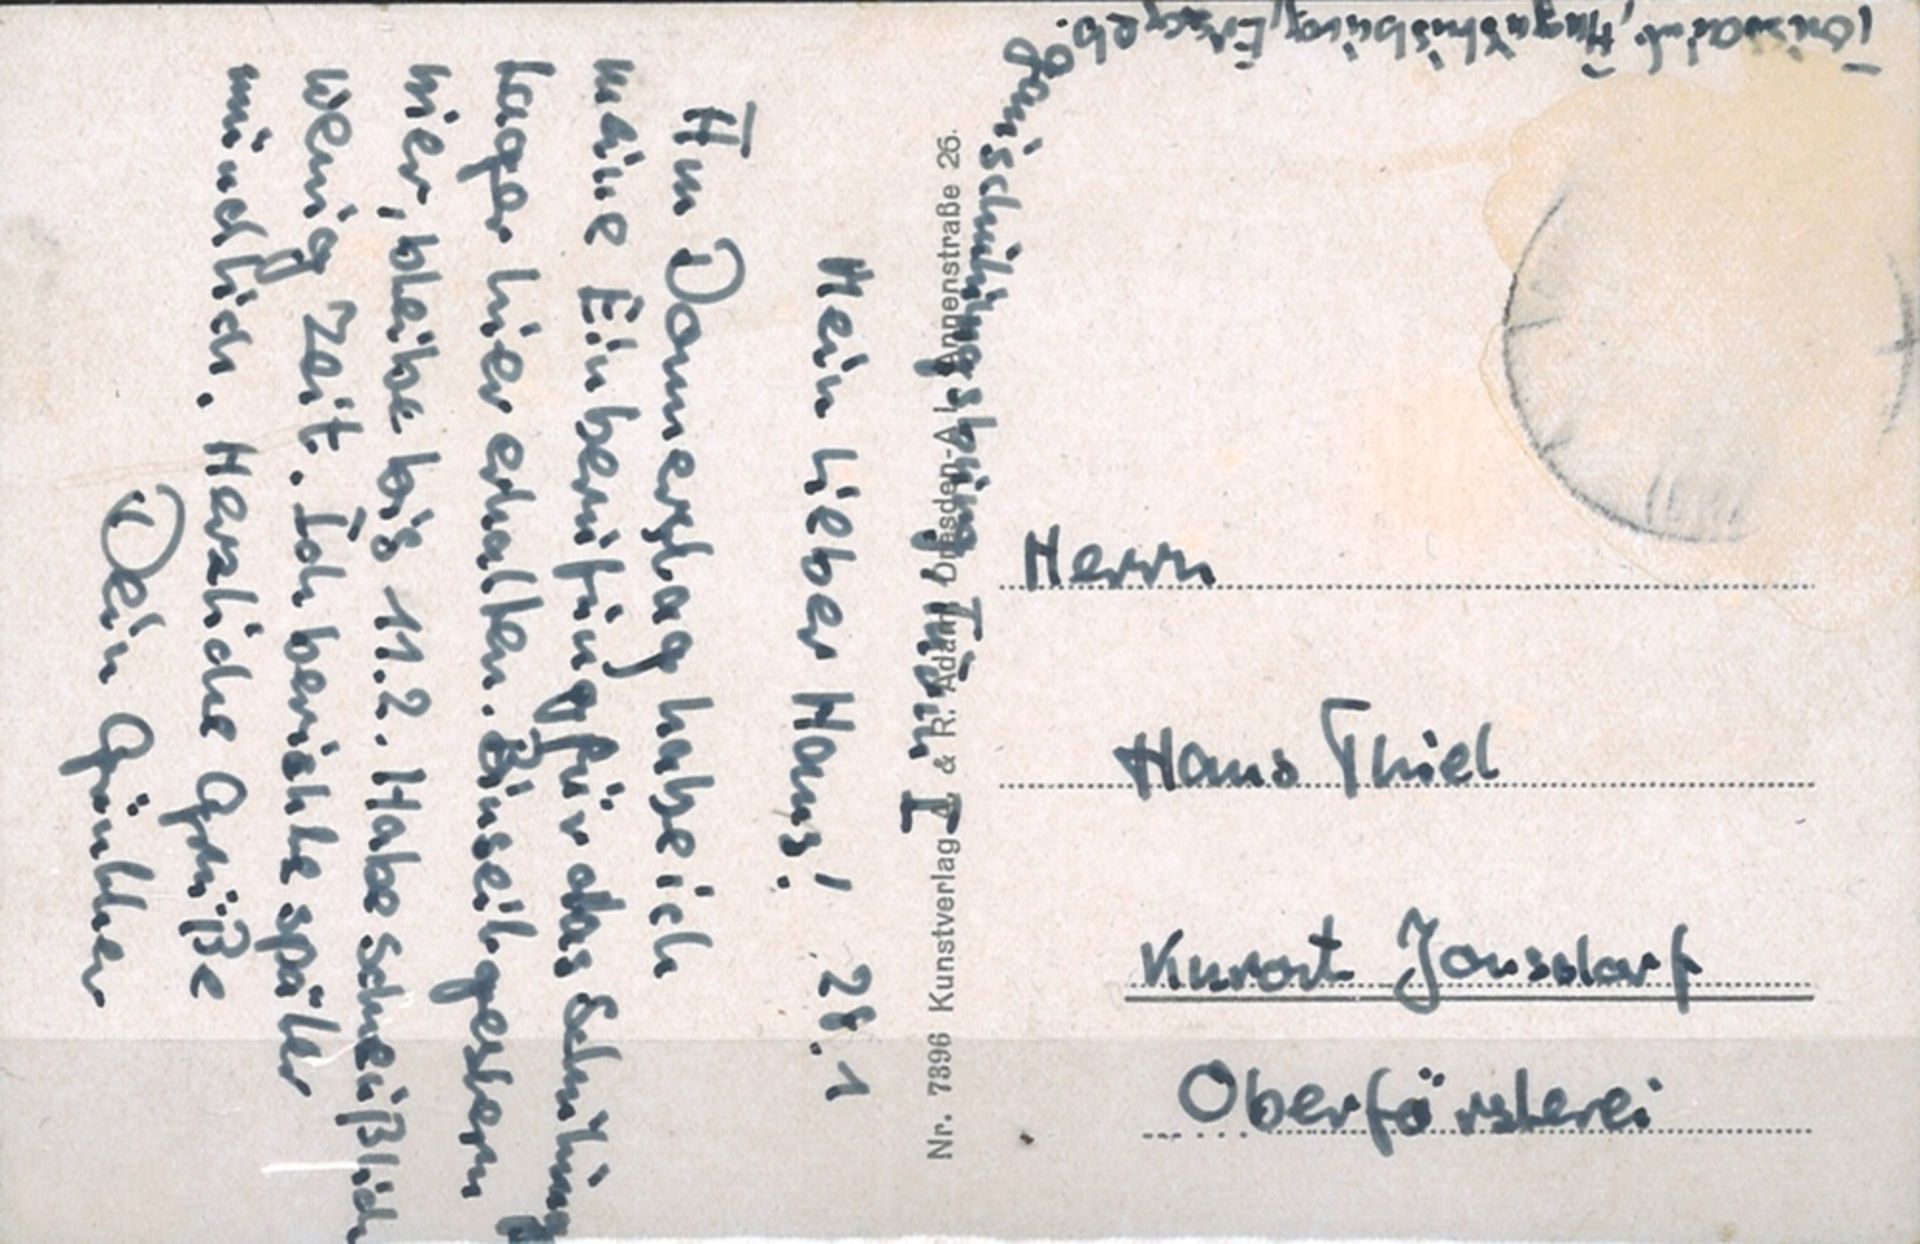 Mein lieber Hans! 28.1
Am Donnerstag habe ich
meine Einberufung für das Schulungs
lager hier erhalten. Bin seit gestern
hier, bleibe bis 11.2. Habe scheußlich
wenig Zeit. Ich berichte später
mündlich. Herzliche Grüße
Dein Günther
Nr. 7396 Kunstverlag A. & R. Adam, Dresden-A 1, Annenstraße 26.
Herrn
Hans Thiel
Kurort Jonsdorf
Oberförsterei